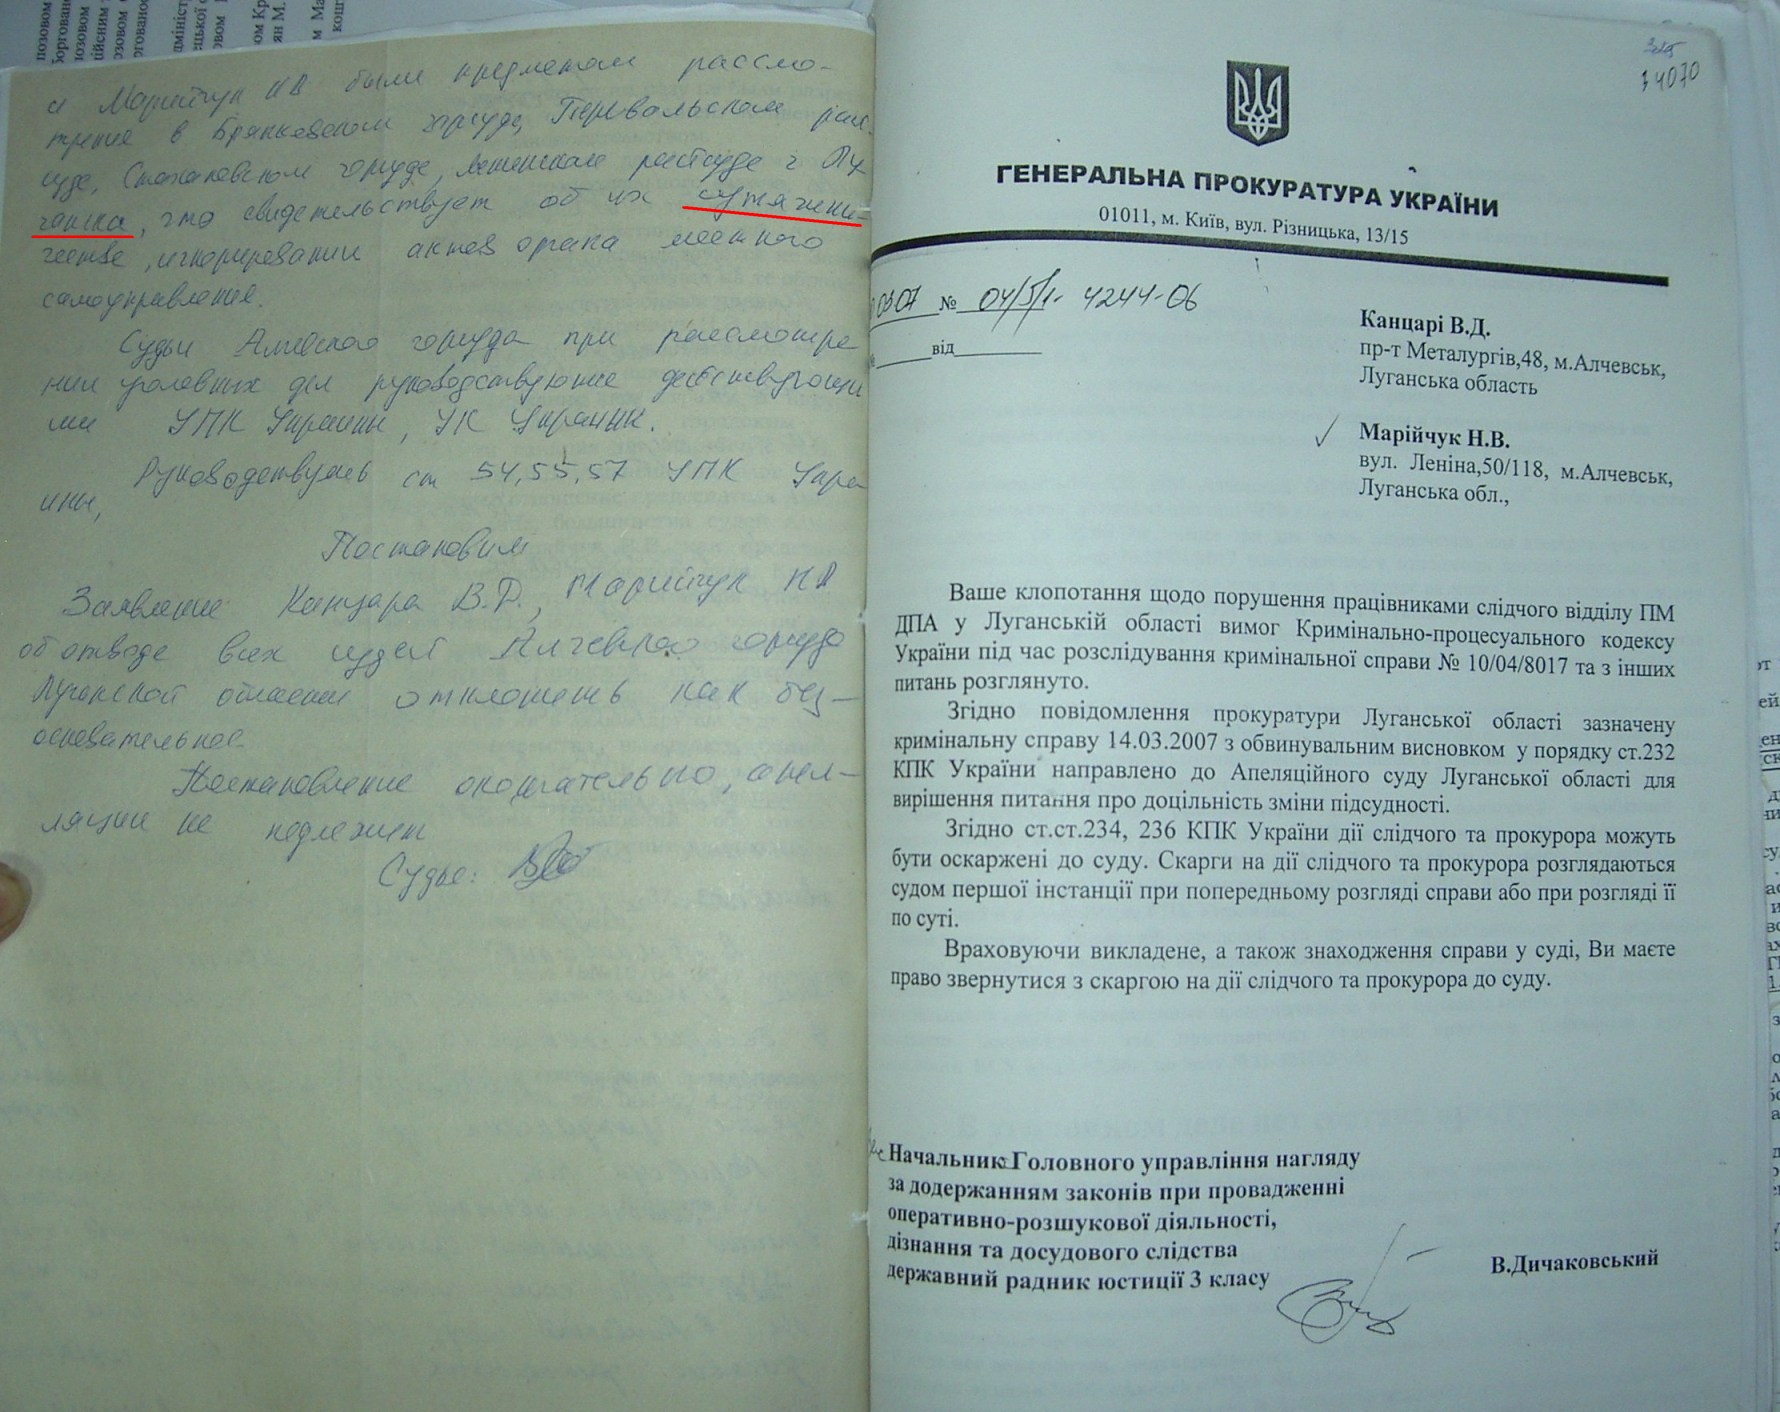 и Марийчук НВ были предметом рассмо-
трения в Брянковском горсуде, Перевальском рай-
суде, Стахановском горсуде, Ленинском райсуде г Лу
ганска, что свидетельствует об их сутяжни-
честве, игнорировании актов органа местного
самоуправления.
Судьи Алчевского горсуда при рассмотре
нии уголовных дел руководствуются действующи
ми УПК Украины, УК Украины.
Руководствуясь ст 54,55,57 УПК Укра
ины,
Постановил
Заявление Канцара В.Д., Марийчук НВ
об отводе всех судей Алчевского горсуда
Луганской области отклонить как без-
основательное
Постановление окончательно, апел-
ляции не подлежит
Судья:
34070
ГЕНЕРАЛЬНА ПРОКУРАТУРА УКРАЇНИ
01011, м. Київ, вул. Різницька, 13/15
0307 № 04/5/1- 4244-06
від
Канцарі В.Д.
пр-т Металургів,48, м.Алчевськ,
Луганська область
Марійчук Н.В.
вул. Леніна,50/118, м.Алчевськ,
Луганська обл.,
Ваше клопотання щодо порушення працівниками слідчого відділу ПМ
ДПА у Луганській області вимог Кримінально-процесуального кодексу
України під час розслідування кримінальної справи № 10/04/8017 та з інших
питань розглянуто.
Згідно повідомлення прокуратури Луганської області зазначену
кримінальну справу 14.03.2007 з обвинувальним висновком у порядку ст.232
КПК України направлено до Апеляційного суду Луганської області для
вирішення питання про доцільність зміни підсудності.
Згідно ст.ст.234, 236 КПК України дії слідчого та прокурора можуть
бути оскаржені до суду. Скарги на дії слідчого та прокурора розглядаються
судом першої інстанції при попередньому розгляді справи або при розгляді її
по суті.
Враховуючи викладене, а також знаходження справи у суді, Ви маєте
право звернутися з скаргою на дії слідчого та прокурора до суду.
Начальник Головного управління нагляду
за додержанням законів при провадженні
оперативно-розшукової діяльності,
дізнання та досудового слідства
державний радник юстиції 3 класу
В.Дичаковський